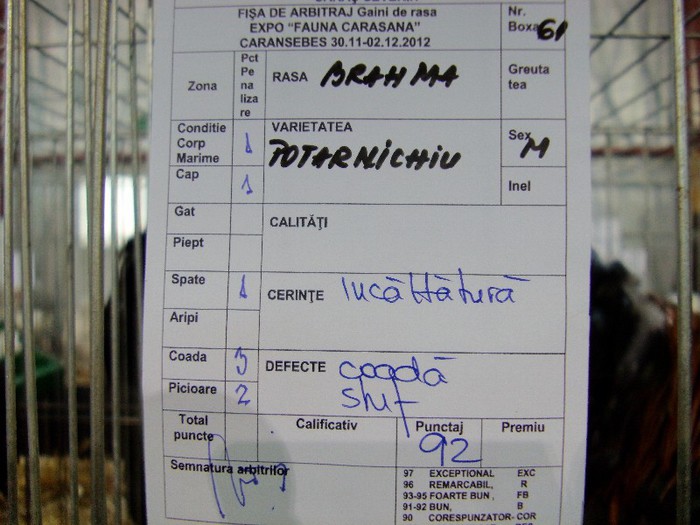 FIŞA DE ARBITRAJ Gaini de rasa
EXPO "FAUNA CARASANA"
CARANSEBES 30.11-02.12.2012
Nr.
Boxa 61
Zona
Pct
Pe
na
liza
re
RASA BRAHMA
Greuta
tea
Conditie
Corp
Marime
1
VARIETATEA
POTARNICHIU
Sex M
Cap
1
Inel
Gat
CALITĂŢI
Piept
Spate
1
CERINŢE Incălțătură
Aripi
Coada
3
DEFECTE coadă
Picioare
2
Total
puncte
Calificativ
Punctaj
92
Premiu
Semnatura arbitrilor
97 EXCEPTIONAL EXC
96 REMARCABIL, R
93-95 FOARTE BUN , FB
91-92 BUN, B
90 CORESPUNZATOR- COR